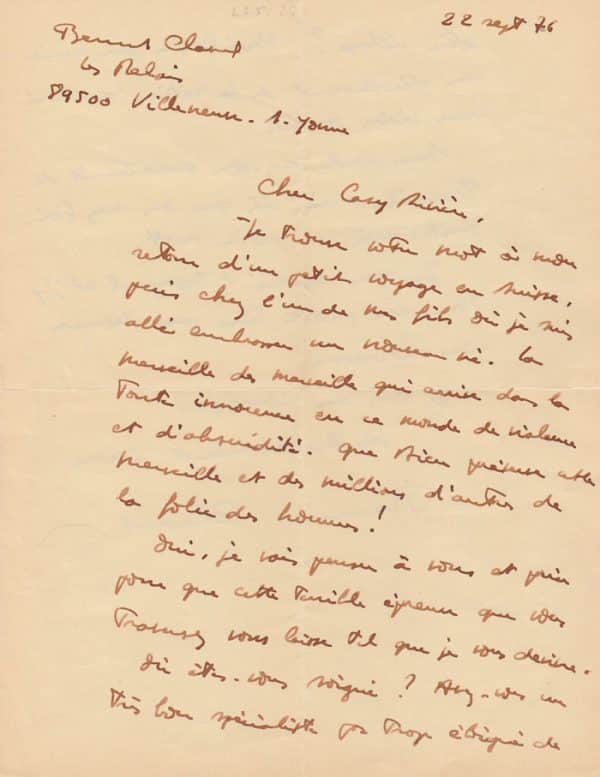 22 sept 76
Bernard Clavel
Les Relais
89500 Villeneuve-s-Yonne
Cher Casy Rivière,
Je trouve votre mot à mon
retour d'un petit voyage en Suisse,
puis chez l'un de mes fils où je suis
allé embrasser un nouveau né. La
merveille des merveille qui arrive dans la
toute innocence en ce monde de violence
et d'absurdité. Que Dieu préserve cette
merveille et des millions d'autres de
la folie des hommes!
Oui, je vais penser à vous et prier
pour que cette terrible épreuve que vous
traversez vous laisse tel que je vous devine.
Où êtes-vous soigné? Avez-vous un
très bon spécialiste pas trop éloigné de